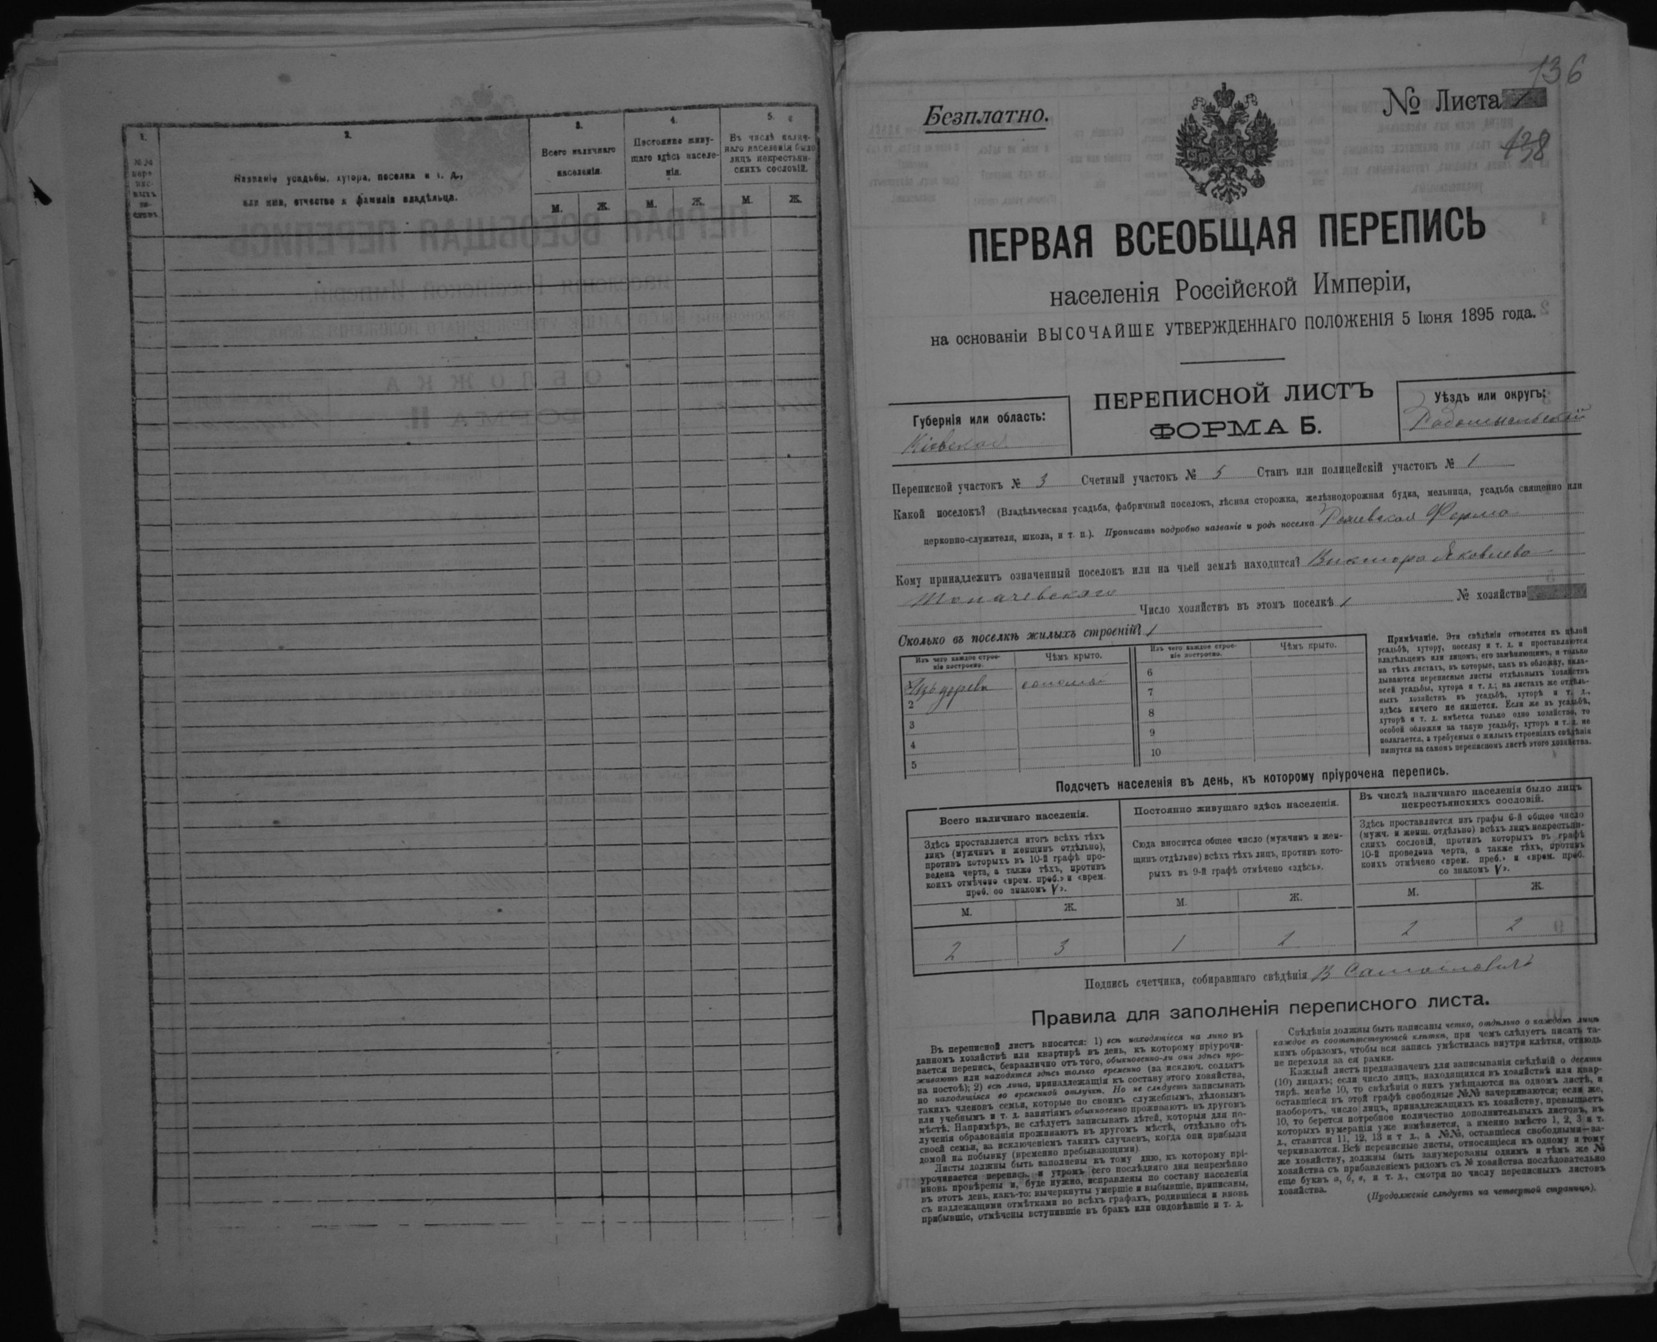 1.
2.
3.
4.
5.
Названіе усадьбы, хутора, поселка и т. д.,
или имя, отчество и фамилія владѣльца.
Всего наличнаго
населенія.
Постоянно живу-
щаго здѣсь населе-
нія.
Въ числѣ налич-
наго населенія было
лицъ некрестьян-
скихъ сословій.
М.
Ж.
М.
Ж.
М.
Ж.
136
Безплатно.
№ Листа
138
ПЕРВАЯ ВСЕОБЩАЯ ПЕРЕПИСЬ
населенія Россійской Имперіи,
на основаніи ВЫСОЧАЙШЕ УТВЕРЖДЕННАГО ПОЛОЖЕНІЯ 5 Іюня 1895 года.
Губернія или область:
Кіевская
ПЕРЕПИСНОЙ ЛИСТЪ
ФОРМА Б.
Уѣздъ или округъ:
Радомысльскій
Переписной участокъ № 3 Счетный участокъ № 5 Станъ или полицейскій участокъ № 1
Какой поселокъ? (Владѣльческая усадьба, фабричный поселокъ, лѣсная сторожка, желѣзнодорожная будка, мельница, усадьба священно или
церковно-служителя, школа, и т. п.). Прописать подробно названіе и родъ поселка Ферма
Кому принадлежитъ означенный поселокъ или на чьей землѣ находится? Виктора Яковлева
Число хозяйствъ въ этомъ поселкѣ 1 № хозяйства
Сколько въ поселкѣ жилыхъ строеній? 1
Изъ чего каждое строе-
ніе построено.
Чѣмъ крыто.
Изъ чего каждое строе-
ніе построено.
Чѣмъ крыто.
Изъ дерева
2
3
4
5
6
7
8
9
10
Примѣчаніе. Эти свѣдѣнія относятся къ цѣлой
усадьбѣ, хутору, поселку и т. д. и проставляются
владѣльцемъ или лицомъ, его замѣняющимъ, и только
на тѣхъ листахъ, въ которые, какъ въ обложку, вкла-
дываются переписные листы отдѣльныхъ хозяйствъ
всей усадьбы, хутора и т. д.; на листахъ же отдѣль-
ныхъ хозяйствъ въ усадьбѣ, хуторѣ и т. д.,
здѣсь ничего не пишется. Если же въ усадьбѣ,
хуторѣ и т. д. имѣется только одно хозяйство, то
особой обложки на такую усадьбу, хуторъ и т. д. не
полагается, а требуемыя о жилыхъ строеніяхъ свѣдѣнія
пишутся на самомъ переписномъ листѣ этого хозяйства.
Подсчетъ населенія въ день, къ которому пріурочена перепись.
Всего наличнаго населенія.
Здѣсь проставляется итогъ всѣхъ тѣхъ
лицъ (мужчинъ и женщинъ отдѣльно),
противъ которыхъ въ 10-й графѣ про-
ведена черта, а также тѣхъ, противъ
коихъ отмѣчено «врем. преб.» и «врем.
преб. со знакомъ V».
М.
Ж.
2
3
Постоянно живущаго здѣсь населенія.
Сюда вносится общее число (мужчинъ и жен-
щинъ отдѣльно) всѣхъ тѣхъ лицъ, противъ кото-
рыхъ въ 9-й графѣ отмѣчено «здѣсь».
М.
Ж.
1
2
Въ числѣ наличнаго населенія было лицъ
некрестьянскихъ сословій.
Здѣсь проставляется изъ графы 6-й общее число
(мужч. и женщ. отдѣльно) всѣхъ лицъ некрестьян-
скихъ сословій, противъ которыхъ въ графѣ
10-й проведена черта, а также тѣхъ, противъ
коихъ отмѣчено «врем. преб.» и «врем. преб.
со знакомъ V».
М.
Ж.
2
2
Подпись счетчика, собиравшаго свѣдѣнія В Самойловичъ
Правила для заполненія переписного листа.
Въ переписной листъ вносятся: 1) всѣ находящіеся на лицо въ
данномъ хозяйствѣ или квартирѣ въ день, къ которому пріурочи-
вается перепись, безразлично отъ того, обыкновенно-ли они здѣсь про-
живаютъ или находятся здѣсь только временно (за исключ. солдатъ
на постоѣ); 2) всѣ лица, принадлежащія къ составу этого хозяйства,
но находящіяся во временной отлучкѣ. Но не слѣдуетъ записывать
такихъ членовъ семьи, которые по своимъ служебнымъ, дѣловымъ
или учебнымъ и т. д. занятіямъ обыкновенно проживаютъ въ другомъ
мѣстѣ. Напримѣръ, не слѣдуетъ записывать дѣтей, которыя для по-
лученія образованія проживаютъ въ другомъ мѣстѣ, отдѣльно отъ
своей семьи, за исключеніемъ такихъ случаевъ, когда они прибыли
домой на побывку (временно пребывающими).
Листы должны быть заполнены къ тому дню, къ которому прі-
урочивается перепись, и утромъ сего послѣдняго дня непремѣнно
вновь провѣрены и, буде нужно, исправлены по составу населенія
въ этотъ день, какъ-то: вычеркнуты умершіе и выбывшіе, приписаны,
съ надлежащими отмѣтками во всѣхъ графахъ, родившіеся и вновь
прибывшіе, отмѣчены вступившіе въ бракъ или овдовѣвшіе и т. д.
Свѣдѣнія должны быть написаны четко, отдѣльно о каждомъ лицѣ
каждое въ соотвѣтствующей клѣткѣ, при чемъ слѣдуетъ писать та-
кимъ образомъ, чтобы вся запись умѣстилась внутри клѣтки, отнюдь
не переходя за ея рамки.
Каждый листъ предназначенъ для записыванія свѣдѣній о десяти
(10) лицахъ; если число лицъ, находящихся въ хозяйствѣ или квар-
тирѣ, менѣе 10, то свѣдѣнія о нихъ умѣщаются на одномъ листѣ, и
оставшіеся въ этой графѣ свободные №№ зачеркиваются; если же,
наоборотъ, число лицъ, принадлежащихъ къ хозяйству, превышаетъ
10, то берется потребное количество дополнительныхъ листовъ, въ
которыхъ нумерація уже измѣняется, а именно вмѣсто 1, 2, 3 и т.
д., ставятся 11, 12, 13 и т. д., а №№, оставшіеся свободными—за-
черкиваются. Всѣ переписные листы, относящіеся къ одному и тому
же хозяйству, должны быть занумерованы однимъ и тѣмъ же №
хозяйства съ прибавленіемъ рядомъ съ № хозяйства послѣдовательно
еще буквъ а, б, в, и т. д., смотря по числу переписныхъ листовъ
хозяйства.
(Продолженіе слѣдуетъ на четвертой страницѣ).